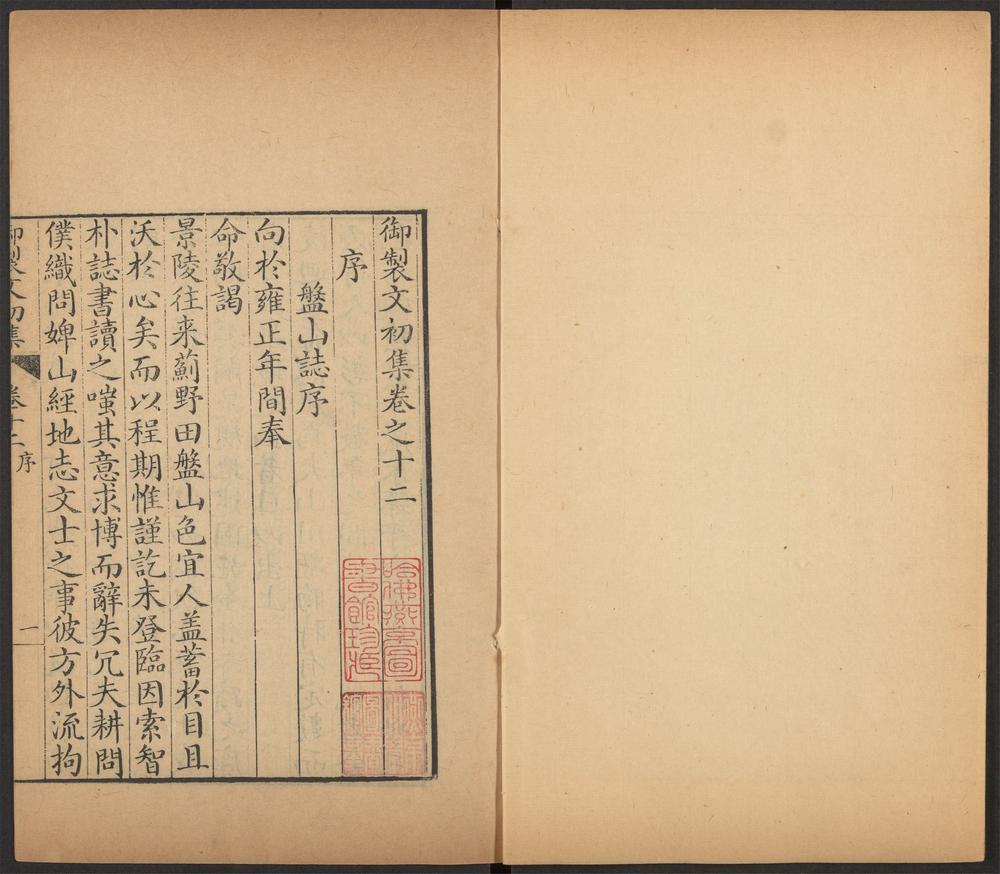 御製文初集卷之十二
序
盤山誌序
向於雍正年間奉
命敬謁
景陵往来薊野田盤山色宜人盖蓄於目且
沃於心矣而以程期惟謹訖未登臨因索智
朴誌書讀之嗤其意求博而辭失冗夫耕問
僕織問婢山經地志文士之事彼方外流拘
御製文初集 卷十二 序 一
哈佛燕京圖
書館珍藏